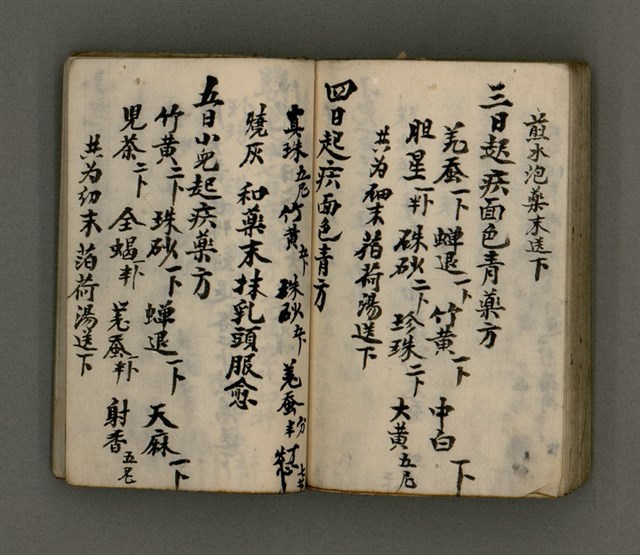 煎水泡藥末送下
三日起疾面色青藥方
羌蚕一卜 蟬退一卜 竹黃一卜 中白 下
胆星一卦 硃砂二卜 珍珠二卜 大黃五厘
共为細末 萡荷湯送下
四日起疾面色青方
真珠五厘 竹黃卡 珠砂卡 羌蚕半 七
燒灰 和藥末抹乳頭服愈
五日小兒起疾藥方
竹黃二卜 珠砂一卜 蟬退一卜 天麻一卜
児茶二卜 全蝎半卜 羌蚕半卜 射香五厘
共为幼末 萡荷湯送下